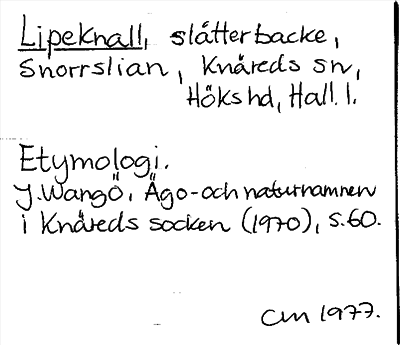 Lipeknall, slåtterbacke,
Snorrslian, Knäreds sn,
Höks hd, Hall. l.
Etymologi.
J. Wangö, Ägo- och naturnamnen
i Knäreds socken (1970), s. 60.
CM 1977.